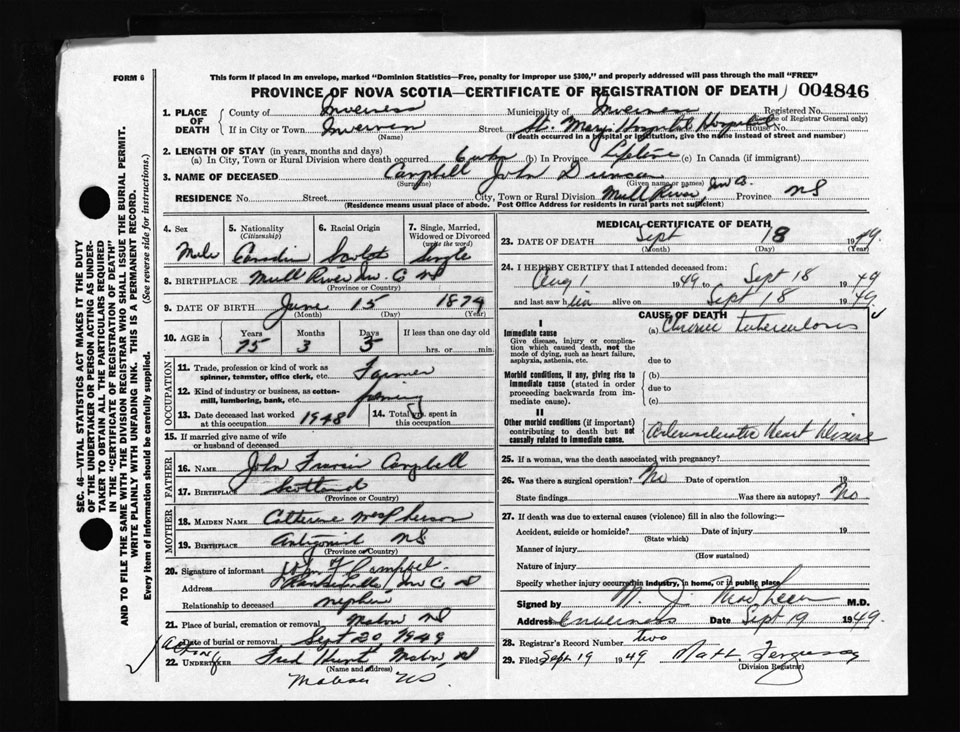 FORM 6
This form if placed in an envelope, marked "Dominion Statistics—Free, penalty for improper use $300," and properly addressed will pass through the mail "FREE"
PROVINCE OF NOVA SCOTIA—CERTIFICATE OF REGISTRATION OF DEATH 004846
1. PLACE OF DEATH
County of Inverness Municipality of Inverness Registered No.
(Use of Registrar General only)
If in City or Town Inverness Street St. Mary's Hospital Hospital House No.
(Name) (If death occurred in a hospital or institution, give the name instead of street and number)
2. LENGTH OF STAY (in years, months and days)
(a) In City, Town or Rural Division where death occurred 6 wks (b) In Province Lifetime (c) In Canada (if immigrant)
3. NAME OF DECEASED Campbell John Duncan
(Surname) (Given name or names)
RESIDENCE No. Street City, Town or Rural Division Mull River, Inv. Co. Province NS
(Residence means usual place of abode. Post Office Address for residents in rural parts not sufficient)
4. Sex
Male
5. Nationality
(Citizenship)
Canadian
6. Racial Origin
Scotch
7. Single, Married, Widowed or Divorced
(write the word)
Single
8. BIRTHPLACE Mull River Inv. C NS
(Province or Country)
9. DATE OF BIRTH June 15 1874
(Month) (Day) (Year)
10. AGE in Years Months Days If less than one day old
75 3 3 hrs. or min.
OCCUPATION
11. Trade, profession or kind of work as spinner, teamster, office clerk, etc. Farmer
12. Kind of industry or business, as cotton-mill, lumbering, bank, etc. farming
13. Date deceased last worked at this occupation 1948
14. Total yrs. spent in this occupation
15. If married give name of wife or husband of deceased
FATHER
16. NAME John Francis Campbell
17. BIRTHPLACE Scotland
(Province or Country)
MOTHER
18. MAIDEN NAME Catherine McPherson
19. BIRTHPLACE Antigonish NS
(Province or Country)
20. Signature of informant Campbell
Address Inv C NS
Relationship to deceased nephew
21. Place of burial, cremation or removal Mabou NS
Date of burial or removal Sept 20, 1949
acting
22. UNDERTAKER Fred Hunt, Mabou, N
(Name and address)
Mabou NS.
MEDICAL CERTIFICATE OF DEATH
23. DATE OF DEATH Sept 18 1949.
(Month) (Day) (Year)
24. I HEREBY CERTIFY that I attended deceased from:
Aug 1 1949 to Sept 18 1949
and last saw him alive on Sept 18 1949.
CAUSE OF DEATH
I
Immediate cause
Give disease, injury or complication which caused death, not the mode of dying, such as heart failure, asphyxia, asthenia, etc.
(a) Chronic tuberculosis
due to
Morbid conditions, if any, giving rise to immediate cause (stated in order proceeding backwards from immediate cause)
(b)
due to
(c)
II
Other morbid conditions (if important) contributing to death but not causally related to immediate cause.
Arteriosclerotic Heart Disease
25. If a woman, was the death associated with pregnancy?
26. Was there a surgical operation? No Date of operation 19
State findings Was there an autopsy? No.
27. If death was due to external causes (violence) fill in also the following:—
Accident, suicide or homicide? Date of injury 19
(State which)
Manner of injury
(How sustained)
Nature of injury
Specify whether injury occurred in industry, in home, or in public place
Signed by M. J. M.D.
Address Inverness Date Sept 19 1949.
28. Registrar's Record Number two
29. Filed Sept 19 1949 Matt. Ferguson
(Division Registrar)
SEC. 46—VITAL STATISTICS ACT MAKES IT THE DUTY
OF THE UNDERTAKER OR PERSON ACTING AS UNDERTAKER
TO OBTAIN ALL THE PARTICULARS REQUIRED
IN THE "CERTIFICATE OF REGISTRATION OF DEATH"
AND TO FILE THE SAME WITH THE DIVISION REGISTRAR WHO SHALL ISSUE THE BURIAL PERMIT.
WRITE PLAINLY WITH UNFADING INK. THIS IS A PERMANENT RECORD.
Every item of information should be carefully supplied. (See reverse side for instructions.)